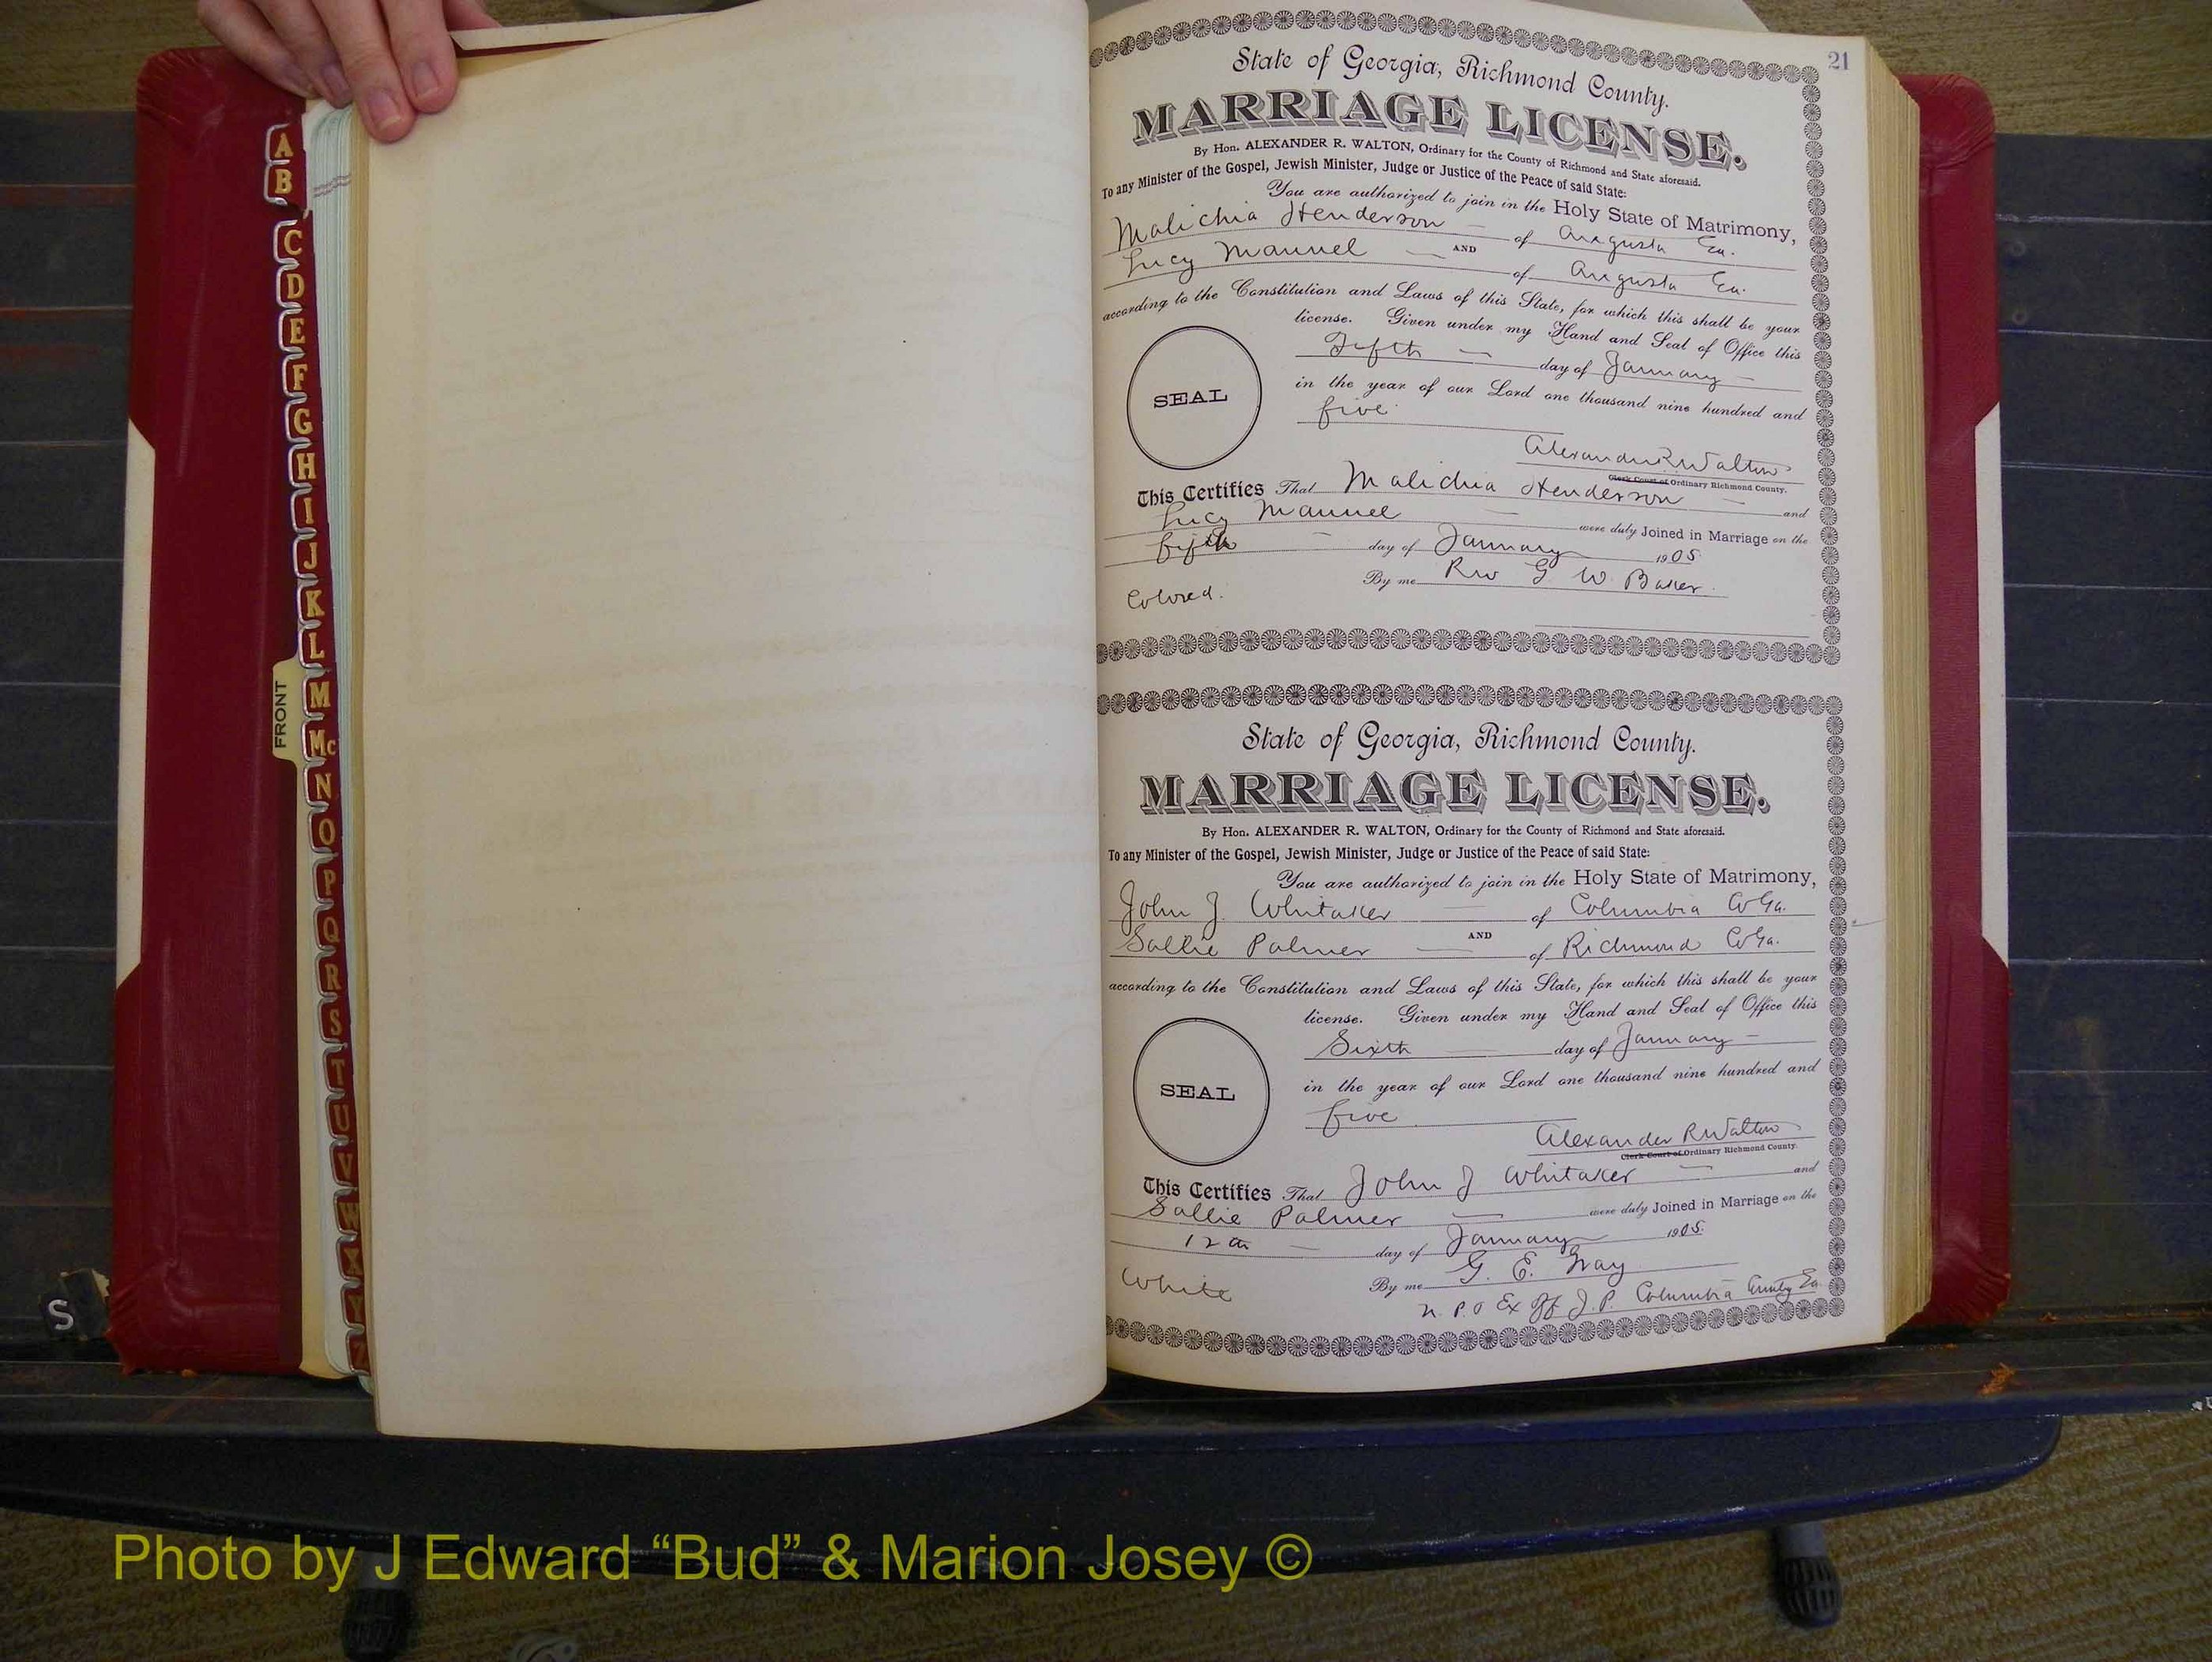 A
B
C
D
E
F
G
H
I
J
K
L
M
Mc
N
O
P
Q
R
S
T
U
V
W
X
Y
Z
FRONT
S
21
State of Georgia, Richmond County.
MARRIAGE LICENSE.
By Hon. ALEXANDER R. WALTON, Ordinary for the County of Richmond and State aforesaid.
To any Minister of the Gospel, Jewish Minister, Judge or Justice of the Peace of said State:
You are authorized to join in the Holy State of Matrimony,
Malichia Henderson of Augusta Ga.
AND
Lucy Manuel of Augusta Ga.
according to the Constitution and Laws of this State, for which this shall be your
license. Given under my Hand and Seal of Office this
Fifth day of January
in the year of our Lord one thousand nine hundred and
five
SEAL
Alexander R Walton
Clerk Court of Ordinary Richmond County.
This Certifies That Malichia Henderson and
Lucy Manuel were duly Joined in Marriage on the
fifth day of January 1905
By me Rev G W Baker.
Colored.
State of Georgia, Richmond County.
MARRIAGE LICENSE.
By Hon. ALEXANDER R. WALTON, Ordinary for the County of Richmond and State aforesaid.
To any Minister of the Gospel, Jewish Minister, Judge or Justice of the Peace of said State:
You are authorized to join in the Holy State of Matrimony,
John J. Whitaker of Columbia Co Ga.
AND
Sallie Palmer of Richmond Co Ga.
according to the Constitution and Laws of this State, for which this shall be your
license. Given under my Hand and Seal of Office this
Sixth day of January
in the year of our Lord one thousand nine hundred and
five
SEAL
Alexander R Walton
Clerk Court of Ordinary Richmond County.
This Certifies That John J Whitaker and
Sallie Palmer were duly Joined in Marriage on the
12th day of January 1905.
By me G. E. Gray
White
N. P. & Ex Off J. P. Columbia County Ga
Photo by J Edward “Bud” & Marion Josey ©